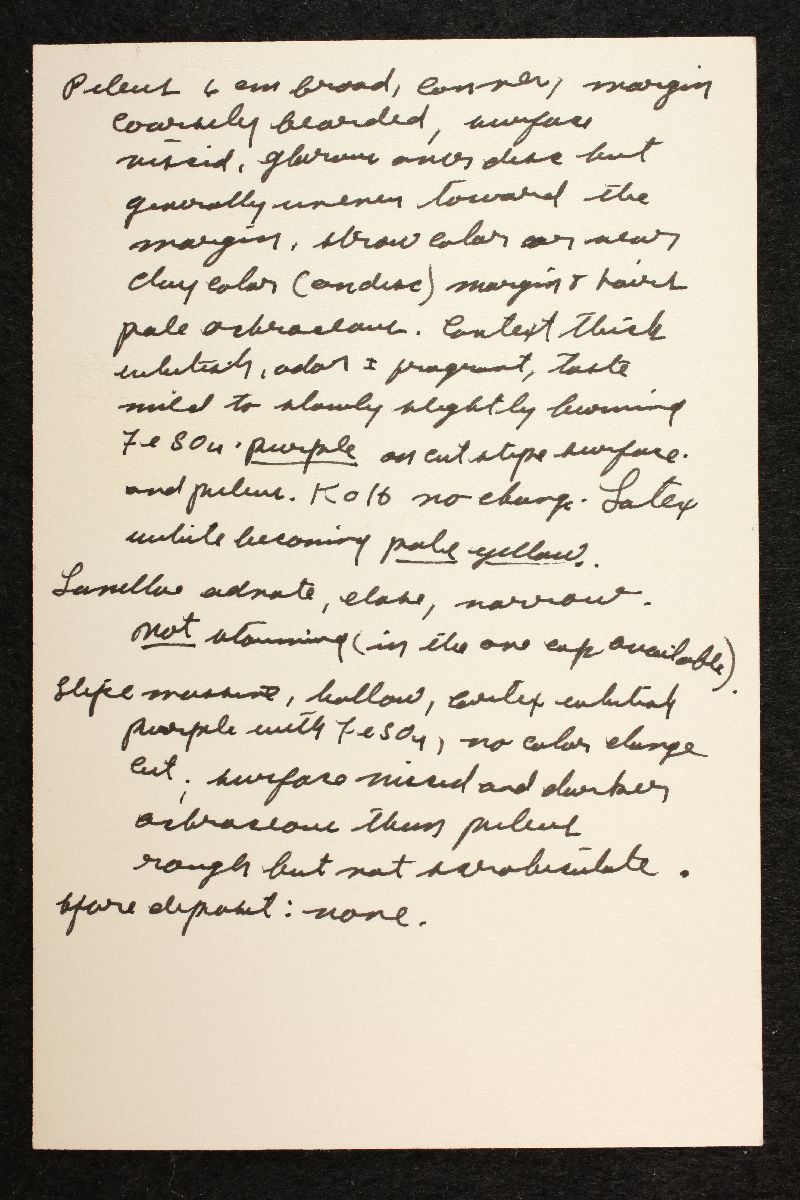 Pileus 6 cm broad, convex, margin
coarsely bearded, surface
viscid, glabrous over disc but
generally uneven toward the
margin, straw color over near
clay color (on disc) margin & hairs
pale ochraceous. Context thick
whitish, odor ± fragrant, taste
mild to slowly slightly burning
FeSO4 · purple on cut stipe surface.
and pileus. KOH no change. Latex
white becoming pale yellow.
Lamellae adnate, close, narrow.
Not staining (in the one cap available).
Stipe massive, hollow, cortex whitish
purple with FeSO4, no color change
cut; surface viscid and darker
ochraceous than pileus
rough but not scrobiculate.
Spore deposit: none.